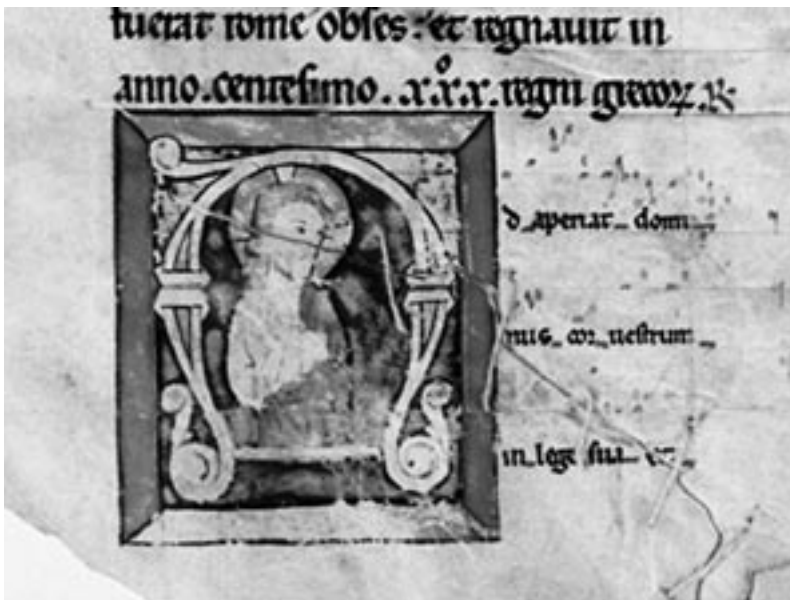 fuerat rome obses: et regnauit in
anno. centesimo. x.x̊.x. regni grecoꝝ. ℟
A
d aperiat domi
nus cor uestrum
in lege sua et